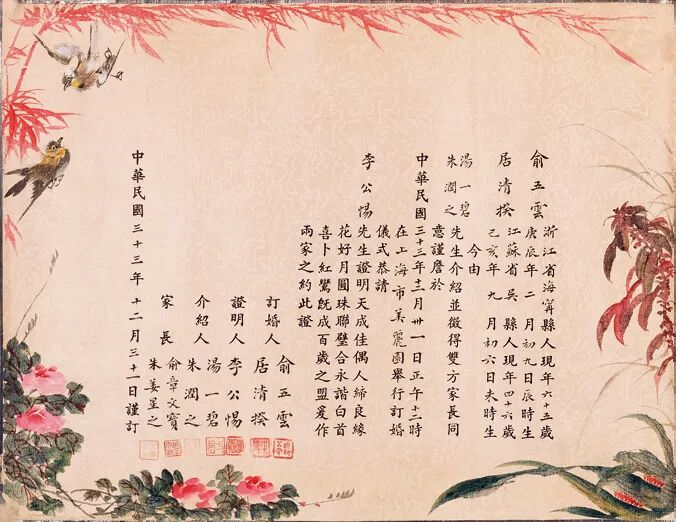 俞五雲 浙江省海寧縣人現年六十五歲
庚辰年 二月初九日辰時生
居清揆 江蘇省吳縣人現年四十六歲
己亥年 九月初六日未時生
今由
湯一碧
朱潤之 先生介紹並徵得雙方家長同
意謹詹於
中華民國三十三年十二月卅一日正午十二時
在上海市美麗園舉行訂婚
儀式恭請
李公惕 先生證明天成佳偶人締良緣
花好月圓珠聯璧合永諧白首
喜卜紅鸞旣成百歲之盟爰作
兩家之約此證
訂婚人 俞五雲
居清揆
證明人 李公惕
介紹人 湯一碧
朱潤之
家長 俞章文寶
朱姜星之
中華民國三十三年十二月三十一日謹訂